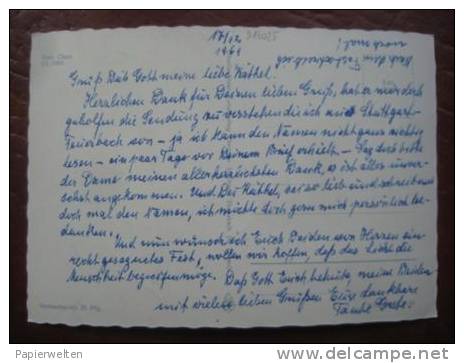 17/12
1961
Grüß Dich Gott meine liebe Käthel.
Herzlichen Dank für Deinen lieben Gruß, hat er mir doch
geholfen die Sendung zu verstehen die ich aus Stuttgart-
Feuerbach von – ja ich kann den Namen nicht ganz richtig
lesen – ein paar Tage vor Deinem Brief erhielt – Sag doch bitte
der Dame meinen allerherzlichsten Dank, es ist alles unver-
sehrt angekommen. Und Du Käthel, sei so lieb und schreib mir
doch mal den Namen, ich möchte doch gern mich persönlich be-
danken.
Und nun wünsch ich Euch Beiden von Herzen ein
recht gesegnetes Fest, wollen wir hoffen, daß das Licht die
Menschheit begreifen möge. Daß Gott Euch behüte, meine Beiden
mit vielen lieben Grüßen Eure dankbare
Tante Grete
© Papierwelten
http://www.delcampe.net